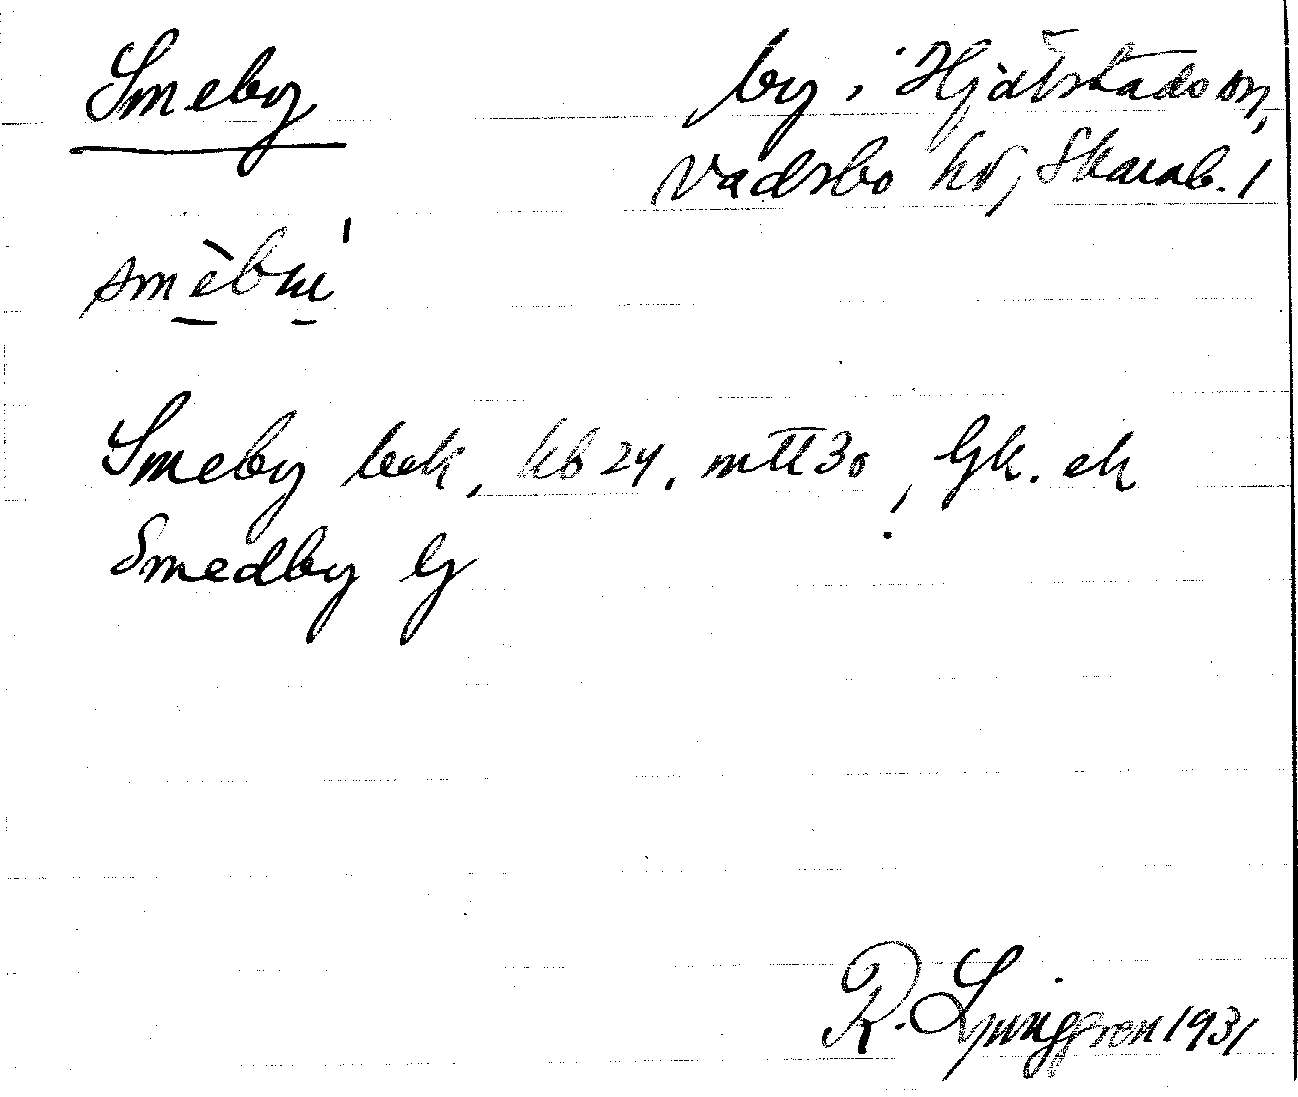 Smeby by i Hjälstads sn,
Vadsbo hd, Skarab. l
smèbui
Smeby bek, kb 24, mtl 30, Gk. ek
Smedby G
R. Ljunggren 1931